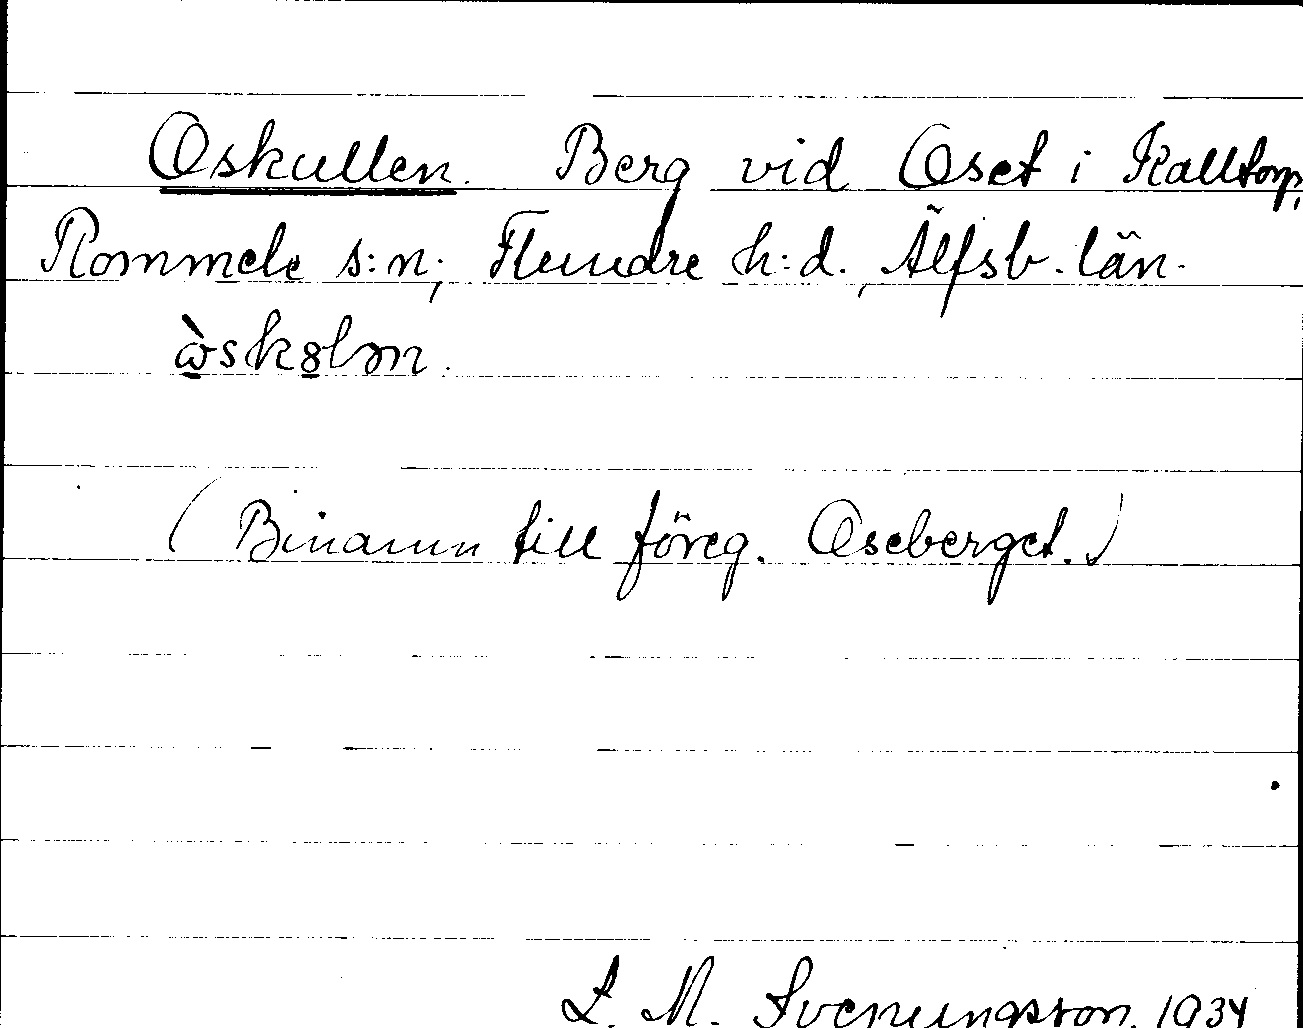 Oskullen. Berg vid Oset i Kalltorp,
Rommele s:n, Flundre h:d., Älfsb. län.
ὼskȣlən.
(Binamn till föreg. Oseberget.)
L. M. Svenungsson 1934